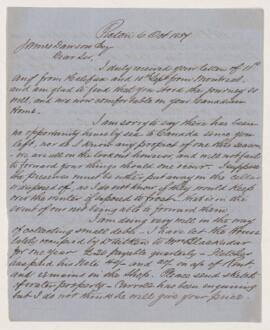 Pictou 6 Oct 1857
James Dawson Esq
Dear Sir,
I duly received your letters of 11th
and from Halifax and 18th Sept from Montreal
and am glad to find that you stood the journey so
well, and are now comfortable in your Canadian
Home.
I am sorry to say there has been
no opportunity hence by sea to Canada since you
left, nor do I know any prospect of one this season
- we are all on the lookout however, and will not fail
to forward your things should one occur. I suppose
the preserves must be either put away in the cellar
or disposed of, as I do not know if they would keep
over the winter if exposed to frost. Advise in the
event of our not being able to forward them.
I am doing very well in the way
of collecting small debts. I have let the House
lately occupied by to Mr Blackadar
for one year £20 payable quarterly -
has paid his Note and off on a/c of Rent
and remains in the Shop. Please send sketch
of water property - has been enquiring
but I do not think he will give your price.